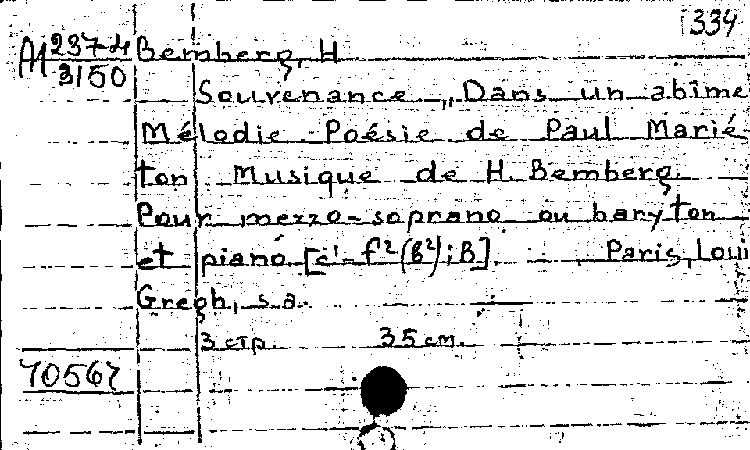 334
M 237-4
3150
Bemberg, H
Souvenance „Dans un abîme
Mélodie. Poésie de Paul Marié-
ton Musique de H. Bemberg
Pour mezzo-soprano ou baryton
et piano [c¹-f²(b²); B]. Paris, Loui
Gregh, s.a.
3 стр. 35 см.
70567